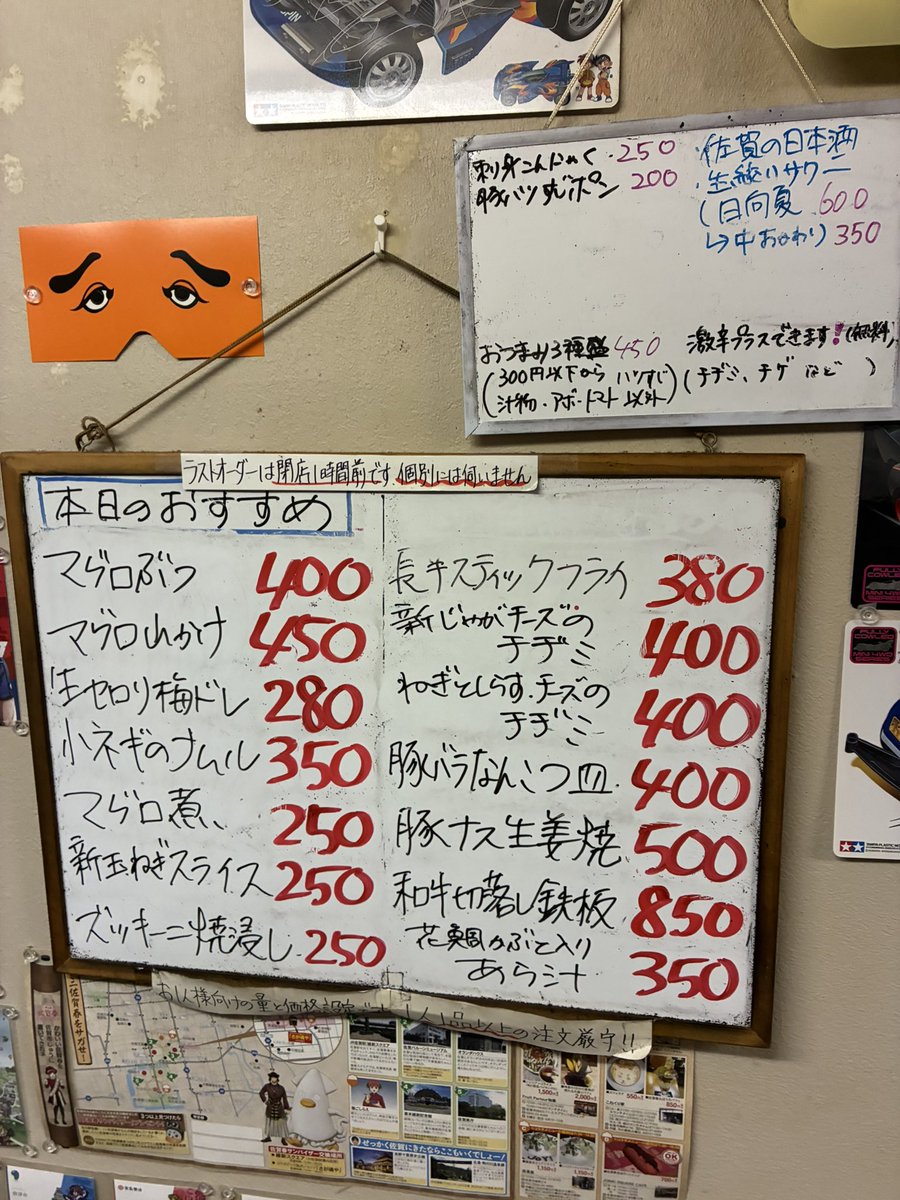 刺身こんにゃく 250
豚バツ煮ポン 200
・佐賀の日本酒
・生絞りサワー
(日向夏 600
↳中おかわり) 350
おつまみ3種盛 450
(300円以下から ハツすじ
汁物・アボ・トマト以外)
激辛プラスできます!(無料)
(チヂミ、チゲ など )
ラストオーダーは閉店1時間前です 個別には伺いません
本日のおすすめ
マグロぶつ 400
マグロ山かけ 450
生セロリ梅ドレ 280
小ネギのナムル 350
マグロ煮 250
新玉ねぎスライス 250
ズッキーニ焼浸し 250
長芋スティックフライ 380
新じゃがチーズの
チヂミ 400
ねぎとしらすチーズの
チヂミ 400
豚バラなんこつ皿 400
豚ナス生姜焼 500
和牛切落し鉄板 850
花鯛かぶと入り
あら汁 350
お1人様向けの量と価格設定です 1人1品以上の注文厳守!!
佐賀春をサガせ!
せっかく佐賀にきたならここもいくでしょー!
FULLY
COWLED
MINI 4WD
TAMIYA